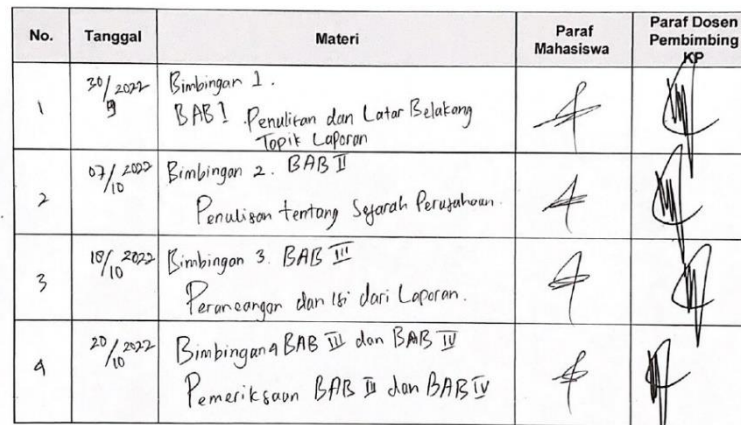 No. Tanggal Materi Paraf Mahasiswa Paraf Dosen Pembimbing KP
1 30/9 2022 Bimbingan 1.
BAB I Penulisan dan Latar Belakang
Topik Laporan
2 07/10 2022 Bimbingan 2. BAB II
Penulisan tentang Sejarah Perusahaan.
3 18/10 2022 Bimbingan 3. BAB III
Perancangan dan Isi dari Laporan.
4 20/10 2022 Bimbingan 4 BAB III dan BAB IV
Pemeriksaan BAB III dan BAB IV